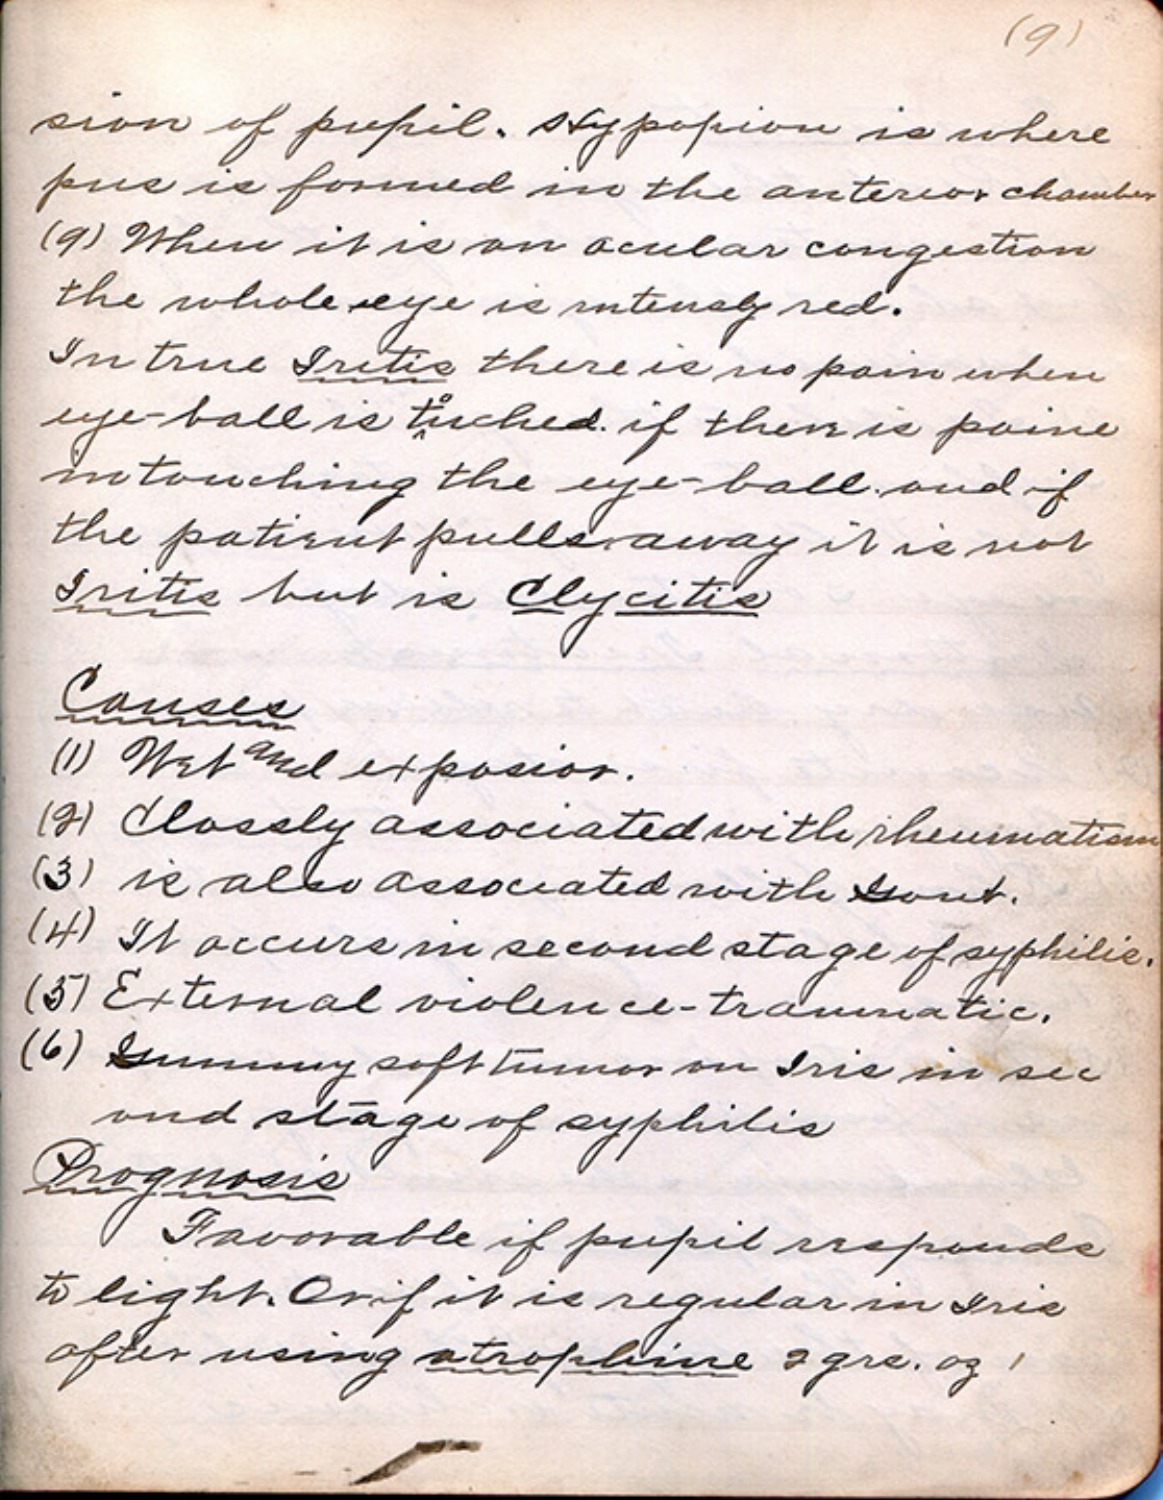 (9)
sion of pupil. Hypopion is where
pus is formed in the anterior chamber
(9) When it is an ocular congestion
the whole eye is intensly red.
In true Iritis there is no pain when
eye-ball is touched. if there is paine
in touching the eye-ball. and if
the patient pulls away it is not
Iritis but is Clycitis
Causes
(1) Wet and exposior.
(2) Clossly associated with rheumatism
(3) is also associated with Gout.
(4) It occurs in second stage of syphilis.
(5) External violence-traumatic.
(6) Gummy soft tumor on Iris in sec
ond stage of syphilis
Prognosis
Favorable if pupil responds
to light. Or if it is regular in Iris
after using atrophine 2 grs. oz 1